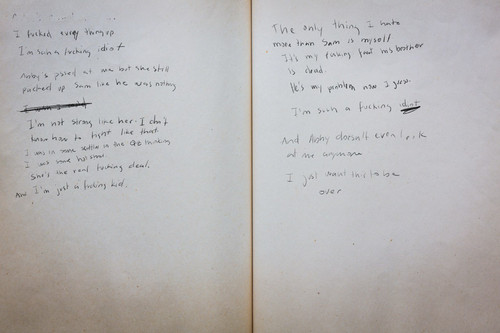 I fucked every thing up
I'm such a fucking idiot
Abby's pissed at me but she still
patched up Sam like he was nothing
I'm not strong like her. I don't
know how to fight like that
I was in some
I was some hot shit.
She's the real fucking deal.
And I'm just a fucking kid.
The only thing I hate
more than Sam is myself
It's my fucking fault his brother
is dead.
He's my problem now I guess.
I'm such a fucking idiot
And Abby doesn't even look
at me anymore
I just want this to be
over